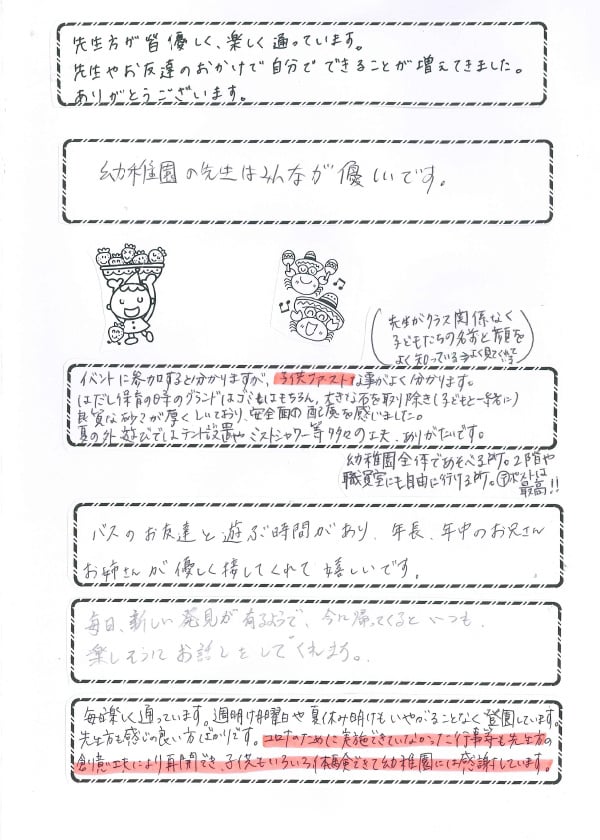 先生方が皆優しく、楽しく通っています。
先生やお友達のおかげで自分でできることが増えてきました。
ありがとうございます。
幼稚園の先生はみんなが優しいです。
先生がクラス関係なく
子どもたちの名前と顔を
よく知っている→よく見てくれている
イベントに参加すると分かりますが、子供ファストな事がよく分かります。
はだし保育の時のグランドはゴミはもちろん、大きな石を取り除き(子どもと一緒に)
良質な砂で厚くしいており、安全面の配慮を感じました。
夏の外遊びではテント設置やミストシャワー等多々の工夫、ありがたいです。
幼稚園全体であそべる所。2階や
職員室にも自由に行ける所。ポストは
最高!!
バスのお友達と遊ぶ時間があり、年長、年中のお兄さん
お姉さんが優しく接してくれて嬉しいです。
毎日、新しい発見が有るようで、今は帰ってくるといつも、
楽しそうにお話しをしてくれます。
毎日楽しく通っています。週明け月曜日や夏休み明けもいやがることなく登園しています。
先生方も感じの良い方ばかりです。コロナのために実施できていなかった行事等も先生方の
創意工夫により再開でき、子供もいろいろ体験できて幼稚園には感謝しています。